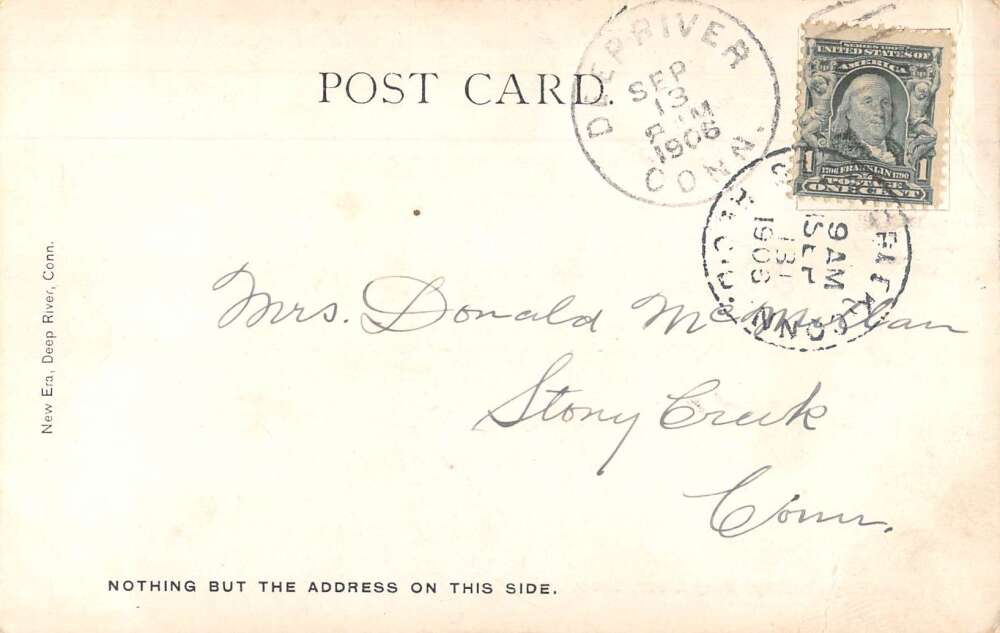 POST CARD.
DEEP RIVER
SEP
13
1906
CONN.
SERIES 1902
UNITED STATES OF
AMERICA
1 1
1706 FRANKLIN 1790
POSTAGE
ONE CENT
9 AM
SEP
13
1906
CONN.
Mrs. Donald McMillan
Stony Creek
Conn.
New Era, Deep River, Conn.
NOTHING BUT THE ADDRESS ON THIS SIDE.